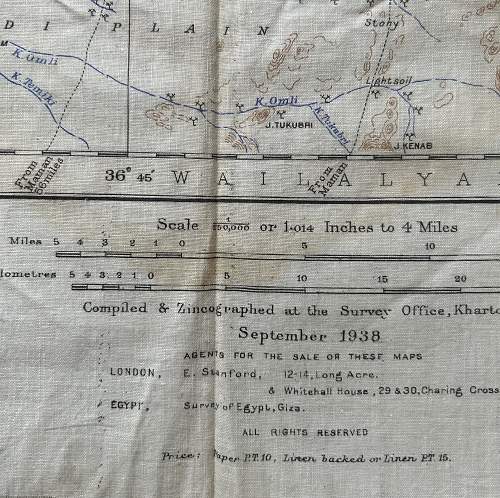 D I P L A I N
Stony
K. Omli
K. Temiki
Lightsoil
K. Omli
J. TUKUBRI
K. Tukubri
J. KENAB
From Maman 56 miles
From Maman
36° 45' W A I L A L Y A
Scale 1/250,000 or 1·014 Inches to 4 Miles
Miles 5 4 3 2 1 0 5 10
lometres 5 4 3 2 1 0 5 10 15 20
Compiled & Zincographed at the Survey Office, Kharto
September 1938
AGENTS FOR THE SALE OR THESE MAPS
LONDON, E. Stanford, 12-14, Long Acre.
& Whitehall House, 29 & 30, Charing Cross
EGYPT, Survey of Egypt, Giza.
ALL RIGHTS RESERVED
Price: Paper P.T. 10, Linen backed or Linen P.T. 15.